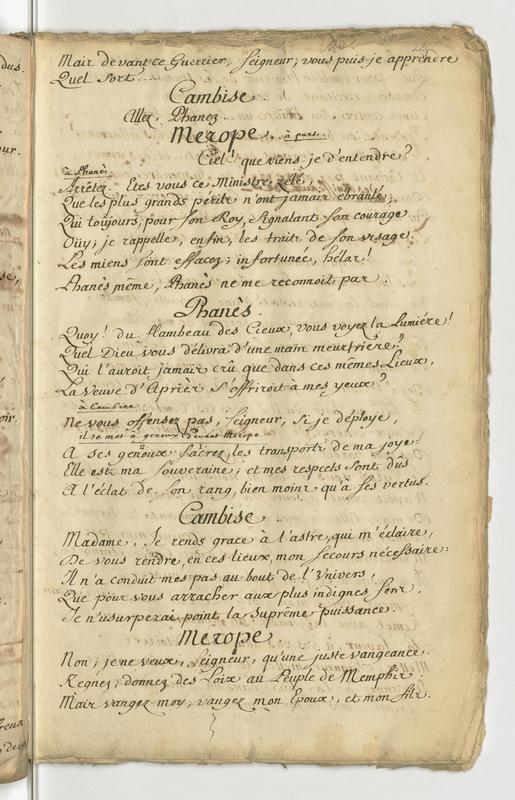 Mais devant ce Guerrier, Seigneur, vous puis-je apprendre
Quel sort.....
Cambise
Allez, Phanez...
Merope à part.
Ciel! que viens-je d'entendre?
à Phanès
Arrêtez. Etes vous ce Ministre zélé,
Que les plus grands perils n'ont jamais ebranlé,
Qui toujours, pour son Roy, signalant son courage...
Oüy; je rappelle, enfin, les traits de son visage.
Les miens sont effacez; infortunée, hélas!
Phanès même, Phanès ne me reconnoit pas.
Phanès.
Quoy! du flambeau des Cieux, vous voyez la Lumiére!
Quel Dieu vous délivra d'une main meurtriére?
Qui l'auroit jamais crû que dans ces mêmes Lieux,
La Veuve d'Apriès s'offriroit à mes yeux?
à Cambise
Ne vous offensez pas, Seigneur, si je déploye,
il se met à genoux devant Merope
A ses genoux sacrez, les transports de ma joye.
Elle est ma souveraine; et mes respects sont dûs
A l'éclat de son rang, bien moins qu'à ses vertus.
Cambise
Madame, Je rends grace à l'astre, qui m'éclaire,
De vous rendre, en ces lieux, mon secours nécessaire:
Il n'a conduit mes pas au bout de l'Univers,
Que pour vous arracher aux plus indignes fers.
Je n'usurperai point la Suprême puissance.
Merope.
Non, je ne veux, Seigneur, qu'une juste vangeance.
Regnez, donnez des Loix au Peuple de Memphis
Mais vangez-moy, vangez mon Epoux, et mon fils.